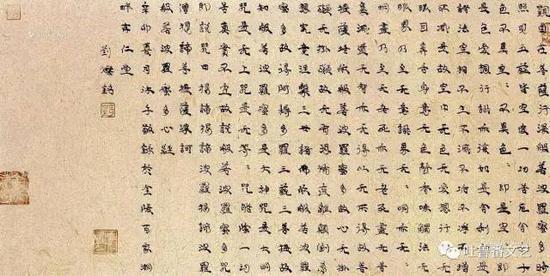 觀自在菩薩行深般若波羅蜜多時
照見五蘊皆空度一切苦厄舍利子
色不異空空不異色色即是空空即
是色受想行識亦復如是舍利子是
諸法空相不生不滅不垢不淨不增
不減是故空中无色无受想行識无
眼耳鼻舌身意无色聲香味觸法无
眼界乃至无意識界无无明亦无无
明盡乃至无老死亦无老死盡无苦
集滅道无智亦无得以无所得故菩
提薩埵依般若波羅蜜多故心无罣
礙无罣礙故无有恐怖遠離顛倒夢
想究竟涅槃三世諸佛依般若波羅
蜜多故得阿耨多羅三藐三菩提故
知般若波羅蜜多是大神咒是大明
咒是无上咒是无等等咒能除一切
苦真實不虛故說般若波羅蜜多咒
即說咒曰揭諦揭諦波羅揭諦波羅
僧揭諦菩提薩婆訶
般若波羅蜜多心經
辛卯春月沐手敬錄於金陵百家湖
畔古仁堂
劉燦銘
吐鲁番文艺